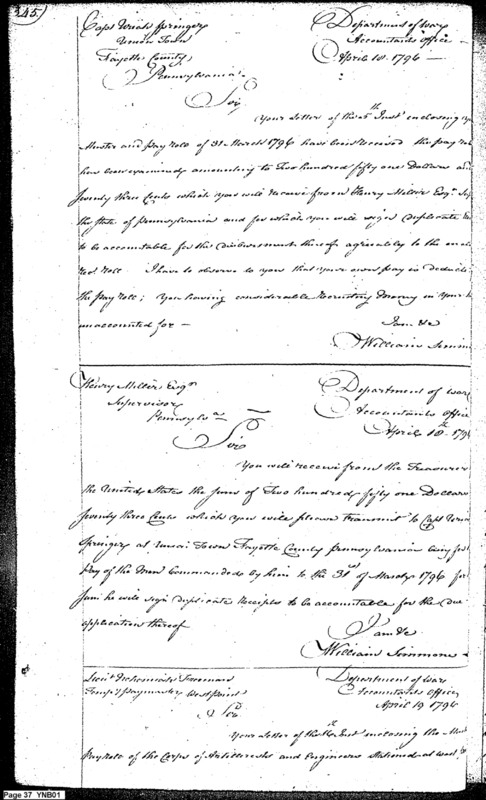 345.
Capt Uriah Springer
Union Town
Fayette County
Pennsylvania
Department of War
Accountants Office
April 18. 1796
Sir
Your letter of the 5th Inst enclosing
Muster and pay Roll of 31 March 1796 have been received the pay
has been examined, amounting to Two hundred fifty one Dollars
Seventy three Cents which you will receive from Henry Miller Esqr
the State of Pennsylvania and for which you will sign duplicate
to be accountable for the disbursement thereof agreeably to the
Roll. I have to observe to you that your own pay is
the pay Roll; You having considerable Recruiting Money in your
unaccounted for —
I am &c
William Simm
Henry Miller Esqr
Supervisor
Pennsylva
Department of War
Accountants Office
April 18th 179
Sir
You will receive from the Treasurer
the United States the sum of Two hundred, fifty one Dollars
Seventy three Cents which you will please transmit to Capt
Springer at Union Town Fayette County Pennsylvania being for
Pay of the Men Commanded by him to the 31st of March 1796 for
he will sign duplicate Receipts to be accountable for the due
application thereof
I am &c
William Simmons
Lieut Nehemiah Freeman
Temp'y paymaster West point
Department of War
Accountants Office
April 19 1796
Sir
Your letter of the Inst inclosing the
Pay Role of the Corps of Artillerists and Engineers stationed at West
Page 37 YNB01